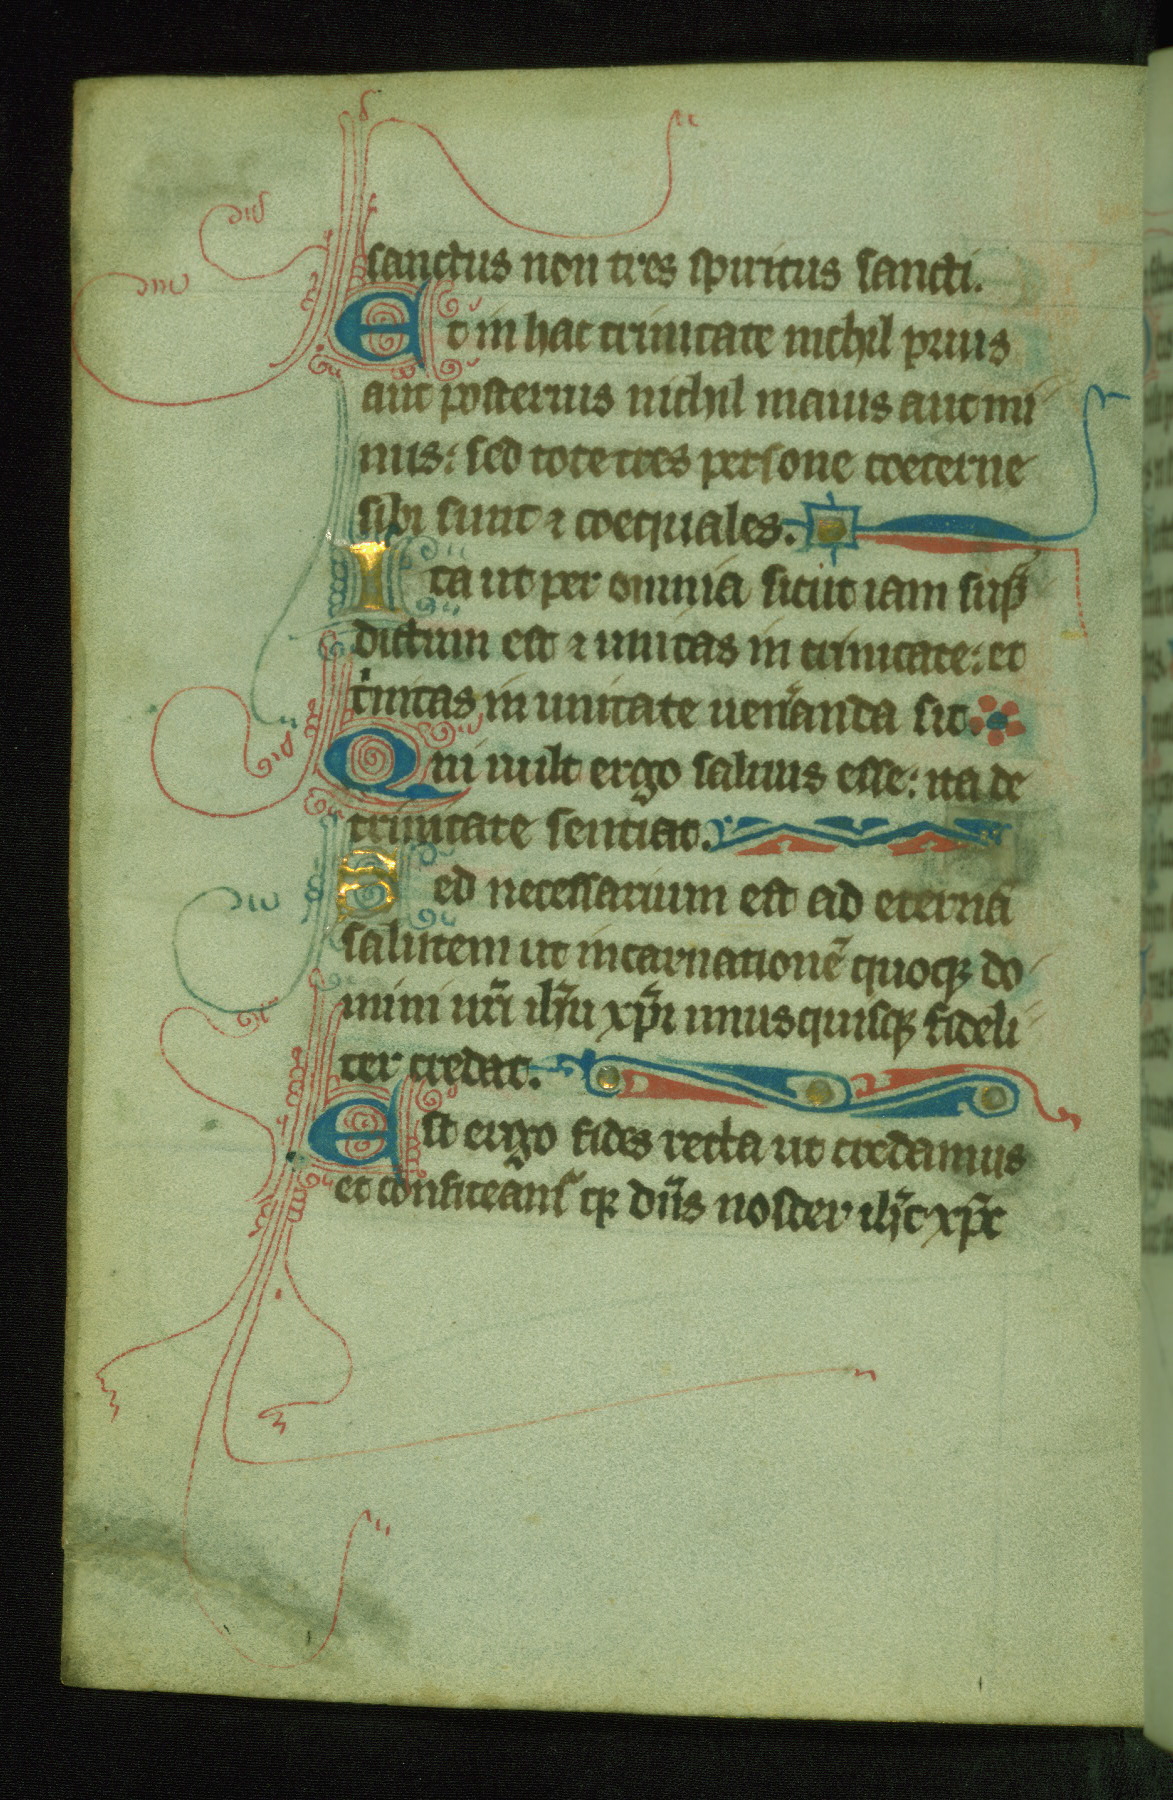 sanctus non tres spiritus sancti.
Et in hac trinitate nichil prius
aut posterius nichil maius aut mi
nus: sed tote tres persone coeterne
sibi sunt ⁊ coequales.
Ita ut per omnia sicut iam sup̄
dictum est ⁊ unitas in trinitate: et
t̍nitas in unitate uen̄anda sit.
Qui uult ergo saluus esse: ita de
trinitate sentiat.
Sed necessarium est ad eternā
salutem ut incarnationē quoqꝫ do
mini nr̄i ih̄u xp̄i unusquisqꝫ fideli
ter credat.
Est ergo fides recta ut credamus
et confiteamᷣ qꝫ dn̄s noster ih̄c xp̄c